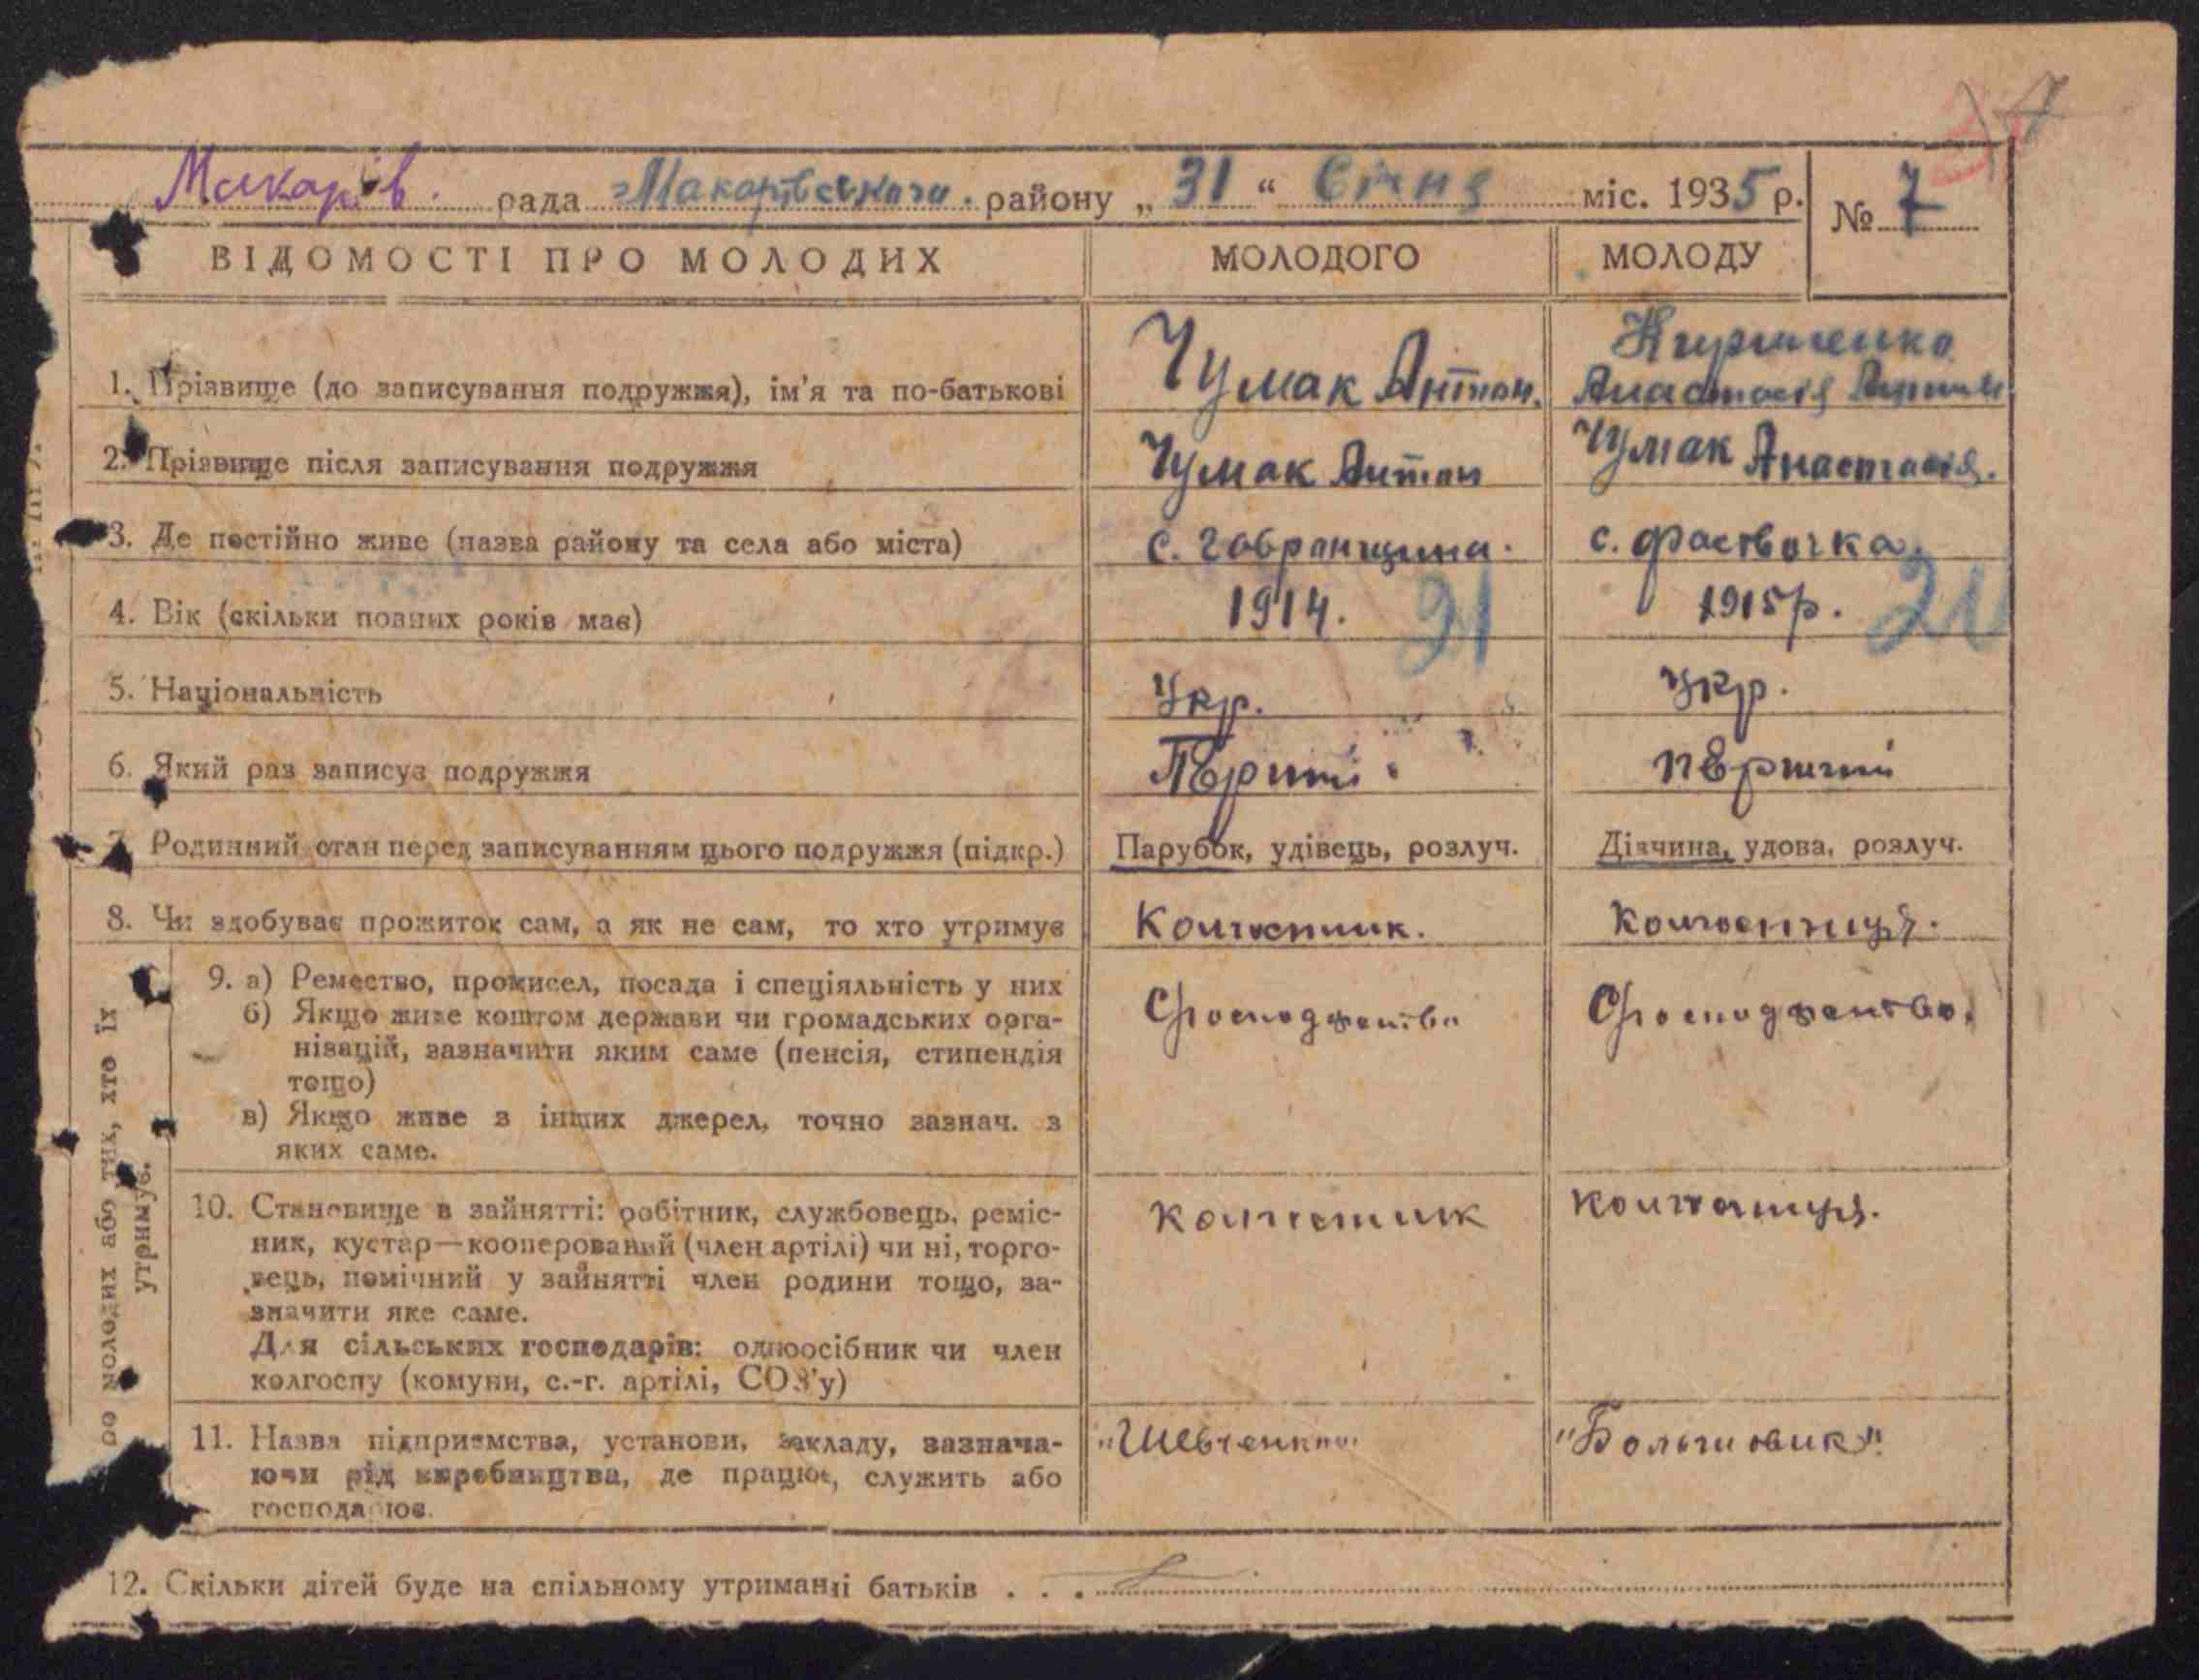 Макарів. рада Макарівського. району „ 31 “ Січня міс. 1935 р. № 7
ВІДОМОСТІ ПРО МОЛОДИХ МОЛОДОГО МОЛОДУ
1. Прізвище (до записування подружжя), ім'я та по-батькові Чумак Антон. Анастасія
2. Прізвище після записування подружжя Чумак Антон Чумак Анастасія.
3. Де постійно живе (назва району та села або міста) с. Гавронщина. с. Фастовочка.
4. Вік (скільки повних років має) 1914. 21 1915р. 20
5. Національність Укр. Укр.
6. Який раз записує подружжя Перший первший
7. Родинний стан перед записуванням цього подружжя (підкр.) Парубок, удівець, розлуч. Дівчина, удова, розлуч.
8. Чи здобуває прожиток сам, а як не сам, то хто утримує Колгоспник. Колгоспниця.
9. а) Ремество, промисел, посада і спеціяльність у них
б) Якщо живе коштом держави чи громадських орга-
нізацій, зазначити яким саме (пенсія, стипендія
тощо)
в) Якщо живе з інших джерел, точно зазнач. з
яких саме.
10. Становище в зайнятті: робітник, службовець, реміс-
ник, кустар—кооперований (член артілі) чи ні, торго-
вець, помічний у зайнятті член родини тощо, за-
значити яке саме.
Для сільських господарів: одноосібник чи член
колгоспу (комуни, с.-г. артілі, СОЗ'у)
колгоспник колгоспниця.
11. Назва підприємства, установи, закладу, зазнача-
ючи рід виробництва, де працює, служить або
господарює.
"Шевченка" "Большовик"
12. Скільки дітей буде на спільному утриманні батьків . . .
ро молодих або тих, хто їх
утримує.